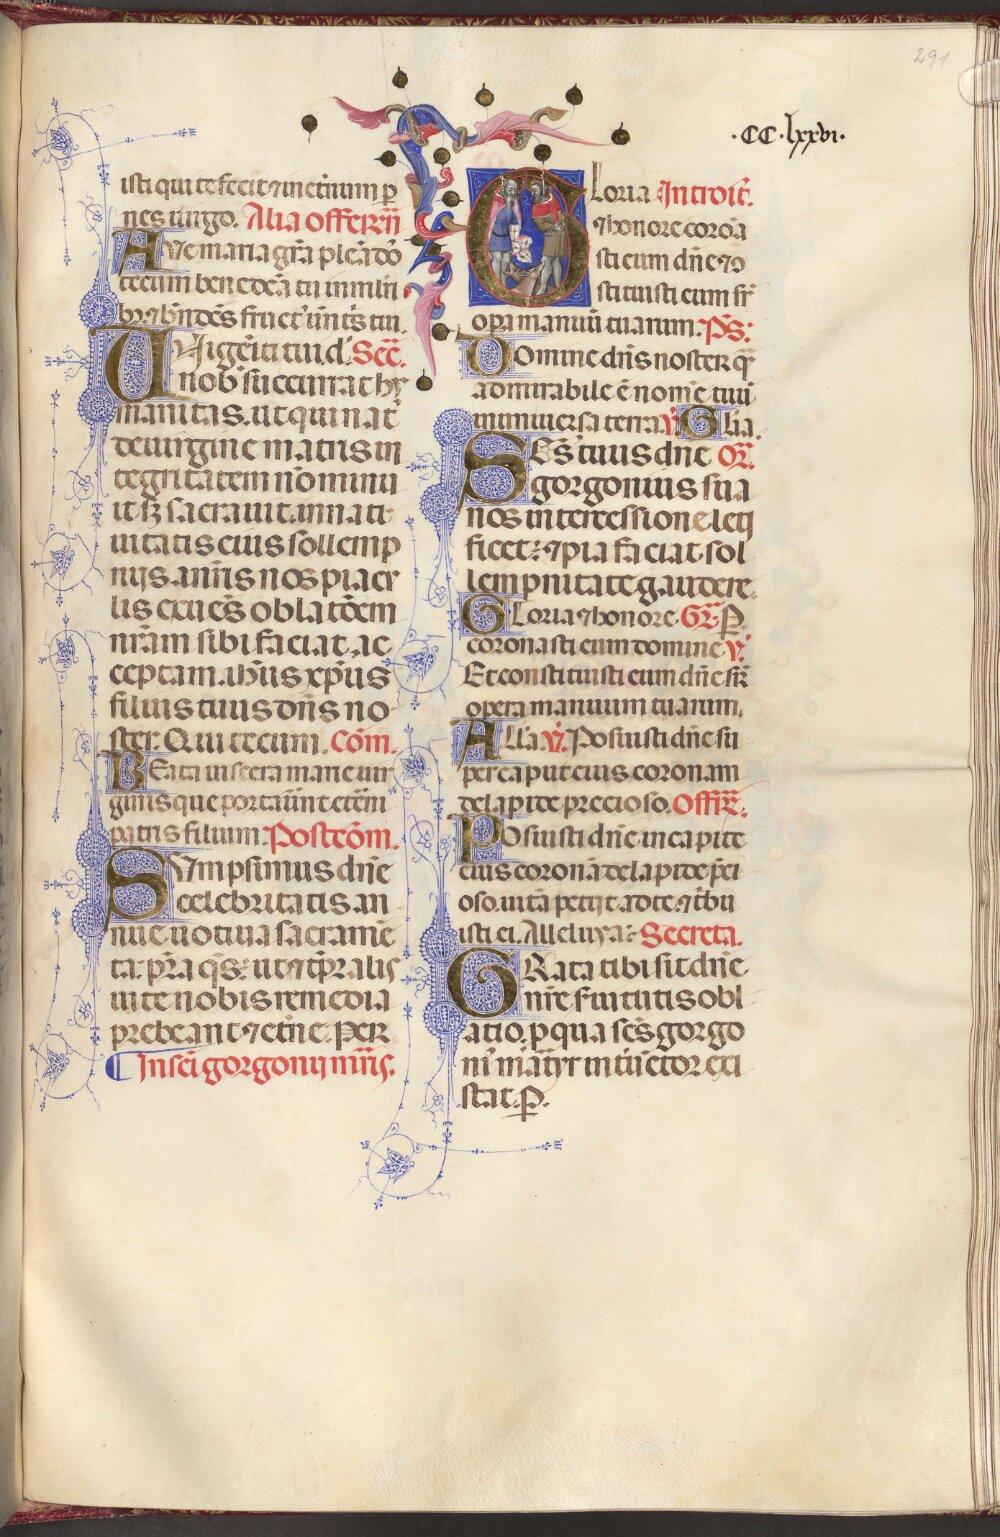 291
·CC·lxxvi·
isti qui te fecit ⁊ in et̄num ꝑ
nes uirgo. Alia offerēn
Aue maria gr̄a plēa dō
tecum benedc̄a tu in mulīri
bꝫ ⁊ bn̄dc̄s fruct' uent̄s tui.
Unigēiti tui d' Sec̄.
nob' succurrat hu
manitas. ut qui nat'
de uirgine matris in
tegritatem nō minu
it sꝫ sacrauit. in nati
uitatis eius sollemp
nijs. a nr̄is nos piacu
lis exues oblatōem
nr̄am sibi faciat. ac
ceptam. ih̄us xp̄us
filius tuus dn̄s no
ster. Qui tecum. Com̄.
Beata uiscera marie uir
ginis que portauūnt et̄ni
patris filium. Postcom̄.
Sumpsimus dn̄e
celebritatis an
nue uotiua sacramē
ta. p̄ra q̄s. ut ⁊ tp̄ralis
uite nobis remedia
prebeant ⁊ et̄ne. Per
In sc̄i gorgonij mr̄is.
Gloria Introit̄.
⁊ honore coroā
sti eum dn̄e ⁊ 9
stituisti eum sr̄
opa manuū tuarum. Ps̄:
Domine dn̄s noster q̄
admirabile ē nom̄e tuū
in uniuersa terra. ꝟ. Gl̄ia.
Sc̄s tuus dn̄e Or̄.
gorgonius sua
nos intercessione leti
ficet: ⁊ pia faciat sol
lempnitate gaudere.
Gloria ⁊ honore. Gr̄. P̱.
coronasti eum domine ꝟ.
Et constituisti eum dn̄e sr̄
opera manuum tuarum.
All'a. ꝟ. Posuisti dn̄e su
per caput eius. coronam
de lapide precioso. Offr̄.
Posuisti dn̄e in capite
eius coronā de lapide p̄ci
oso. uitā petijt a d te. ⁊ t̄bu
isti ei. Alleluya: Secreta.
Grata tibi sit dn̄e
nr̄e s'uitutis obl
atio. ꝑ qua sc̄s gorgo
ni' martyr int'uentor exi
stat. P̱.